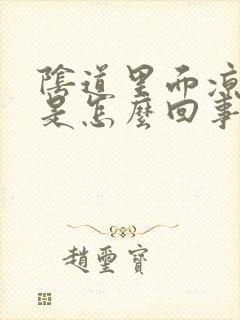 陰道里面凉
是怎麼回事
趙璽寶